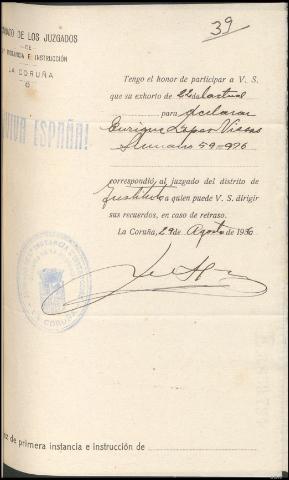 39
DE LOS JUZGADOS
DE
INSTANCIA E INSTRUCCIÓN
LA CORUÑA
¡VIVA ESPAÑA!
Tengo el honor de participar a V. S.
que su exhorto de 22 del actual
para declarar
Enrique Lopez
Sumario 59-936
correspondió al juzgado del distrito de
Instituto a quien puede V. S. dirigir
sus recuerdos, en caso de retraso.
La Coruña, 29 de Agosto de 1936
LA CORUÑA
ez de primera instancia e instrucción de